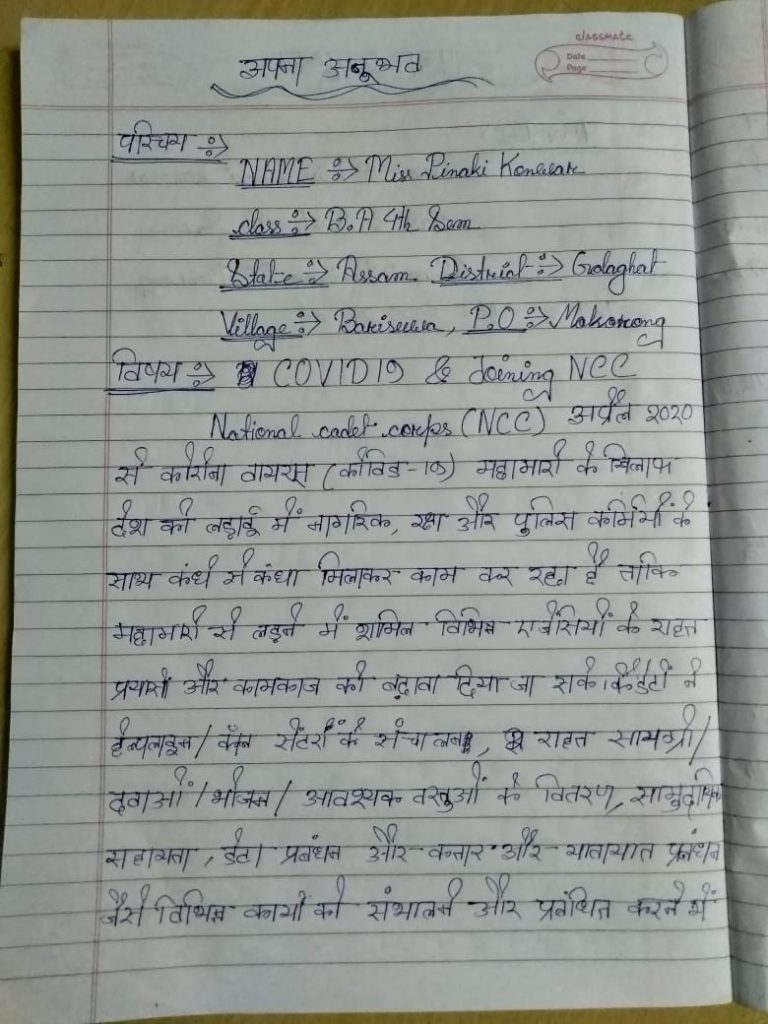 classmate
Date
Page
अपना अनुभव
परिचय :->
NAME :-> Miss Pinaki Konwar
class :-> B.A 4th Sem
State :-> Assam District :-> Golaghat
Village :-> Bariscuwa, P.O :-> Mokorong
विषय :-> COVID19 & Joining NCC
National cadet corps (NCC) अप्रैल 2020
से कोरोना वायरस (कोविड-19) महामारी के खिलाफ
देश की लड़ाई में नागरिक, रक्षा और पुलिस कर्मियों के
साथ कंधे से कंधा मिलाकर काम कर रहा है ताकि
महामारी से लड़ने में शामिल विभिन्न एजेंसियों के राहत
प्रयासों और कामकाज को बढ़ावा दिया जा सके। कैडेटों ने
हेल्पलाइन/ कॉल सेंटरों के संचालन, राहत सामग्री/
दवाओं/भोजन/ आवश्यक वस्तुओं के वितरण, सामुदायिक
सहायता, डेटा प्रबंधन और कतार और यातायात प्रबंधन
जैसे विभिन्न कार्यों को संभालने और प्रबंधित करने में